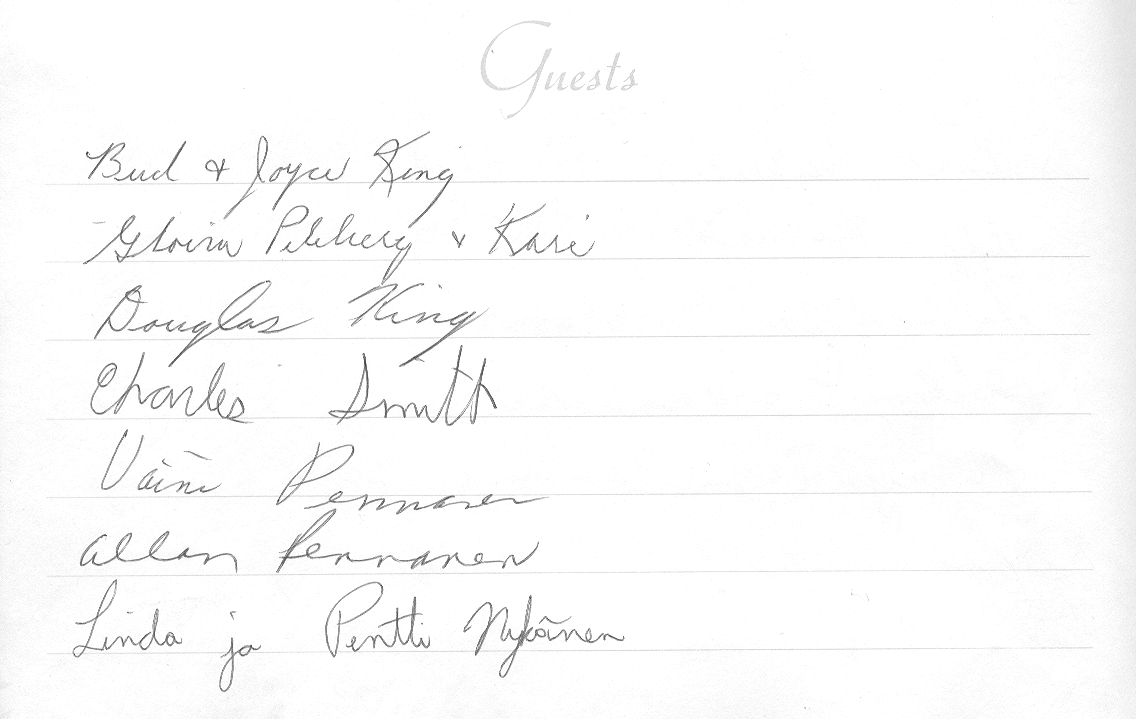 Guests
Bud & Joyce King
& Kari
Douglas King
Charles Smith
Pennanen
Allan Pennanen
Linda ja Pentti Nykänen